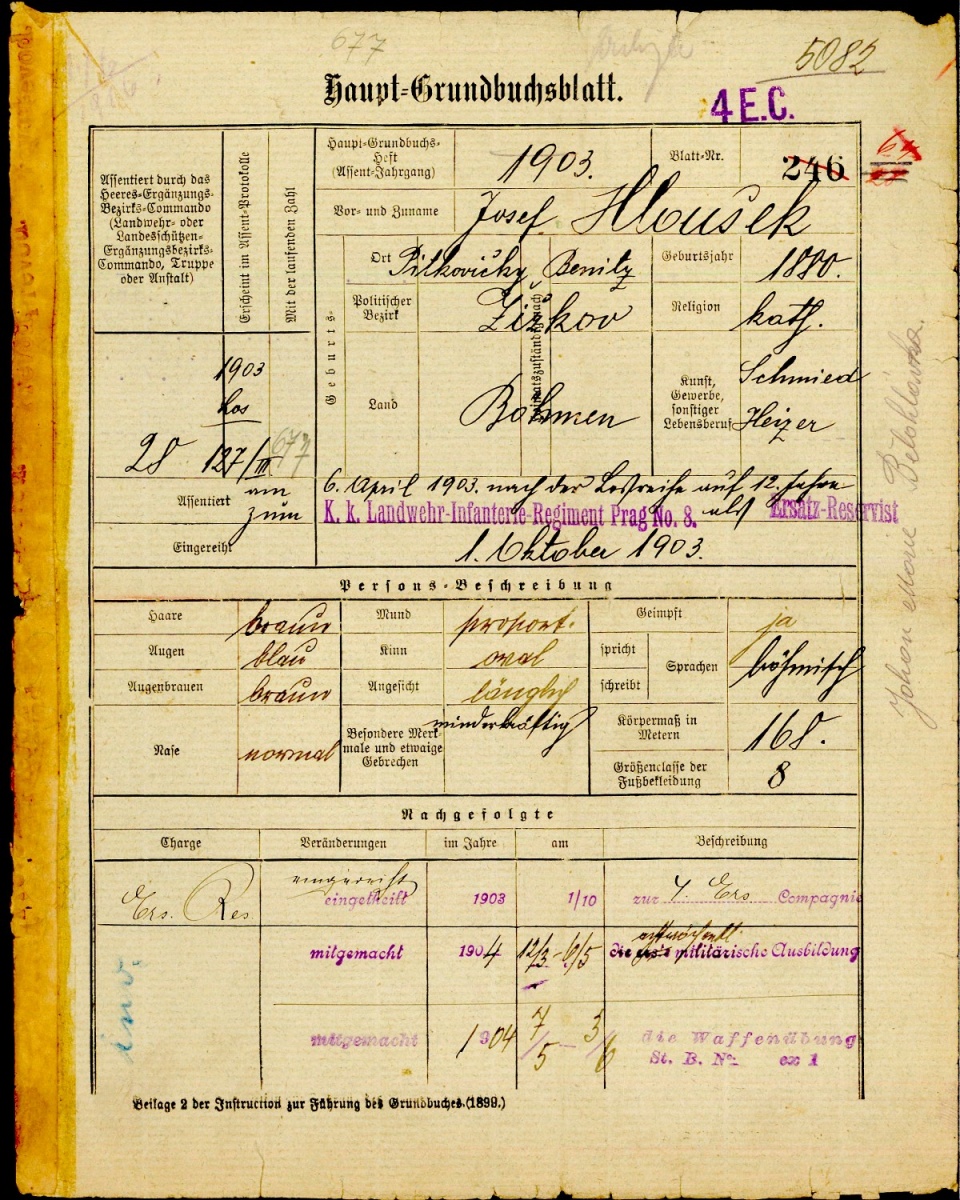 677
5082
Haupt-Grundbuchsblatt.
4 E.C.
Assentiert durch das
Heeres-Ergänzungs-
Bezirks-Commando
(Landwehr- oder
Landesschützen-
Ergänzungsbezirks-
Commando, Truppe
oder Anstalt)
Erscheint im Assent-Protokolle
Mit der laufenden Zahl
Haupt-Grundbuchs-
Heft
(Assent-Jahrgang)
1903.
Blatt-Nr.
246
Vor- und Zuname
Josef Hloušek
Geburts-
Ort
Pitkovičky
Heimatszuständig nach
Benitz
Geburtsjahr
1880.
Politischer
Bezirk
Žižkov
Religion
kath.
Land
Böhmen
Kunst,
Gewerbe,
sonstiger
Lebensberuf
Schmied
Heizer
1903
Los
28
127/III
677
Assentiert
am
zum
6. April 1903. nach der Losreihe auf 12. Jahre
K. k. Landwehr-Infanterie-Regiment Prag No. 8.
als
Ersatz-Reservist
Eingereiht
1. Oktober 1903.
Persons-Beschreibung
Haare
braun
Mund
proport.
Geimpft
ja
Augen
blau
Kinn
oval
spricht
schreibt
Sprachen
böhmisch
Augenbrauen
braun
Angesicht
länglich
Nase
normal
Besondere Merk-
male und etwaige
Gebrechen
minderkräftig
Körpermaß in
Metern
168.
Größenclasse der
Fußbekleidung
8
Johan Marie
Nachgefolgte
Charge
Veränderungen
im Jahre
am
Beschreibung
Ers. Res
eingereiht
eingetheilt
1903
1/10
zur 4 Ers Compagnie
mitgemacht
1904
12/3 - 6/5
achtwöchentl.
die militärische Ausbildung
mitgemacht
1904
7/5 - 3/6
die Waffenübung
St. B. No ex 1
Beilage 2 der Instruction zur Führung des Grundbuches.(1899.)